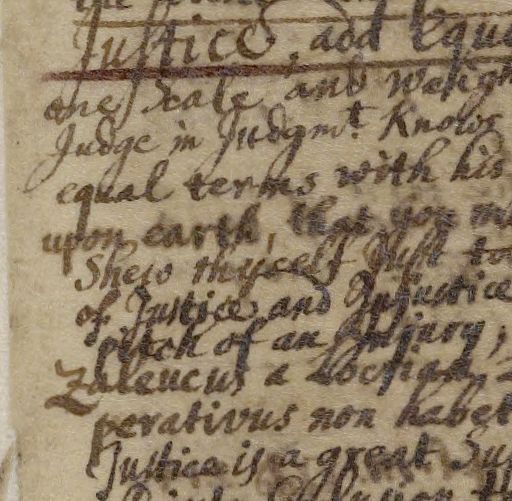 Justice, and Equ
one Scale and weigh
Judge in Judgmt. Knows
equal terms with his
upon earth, that you m
Shew thyself Just to
of Justice and Injustice
pitch of an Injury,
Zaleucus a Locrian
perativus non habet
Justice is a great Su